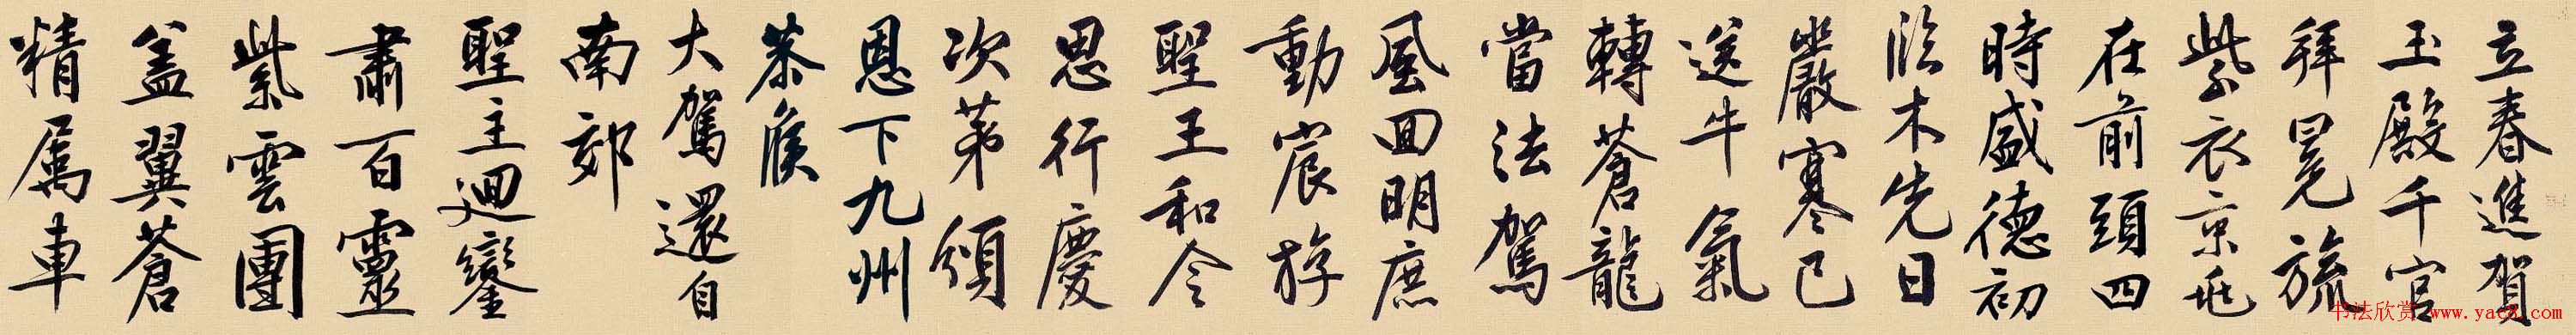 立春進賀
玉殿千官
拜冕旒
紫衣京兆
在前頭四
時盛德初
臨木先日
嚴寒已
送牛氣
轉蒼龍
當法駕
風回明庶
動宸游
聖王和令
思行慶
次第頒
恩下九州
恭候
大駕還自
南郊
聖主迴鑾
肅百靈
紫雲團
蓋翼蒼
精屬車
书法欣赏 www.yac8.com